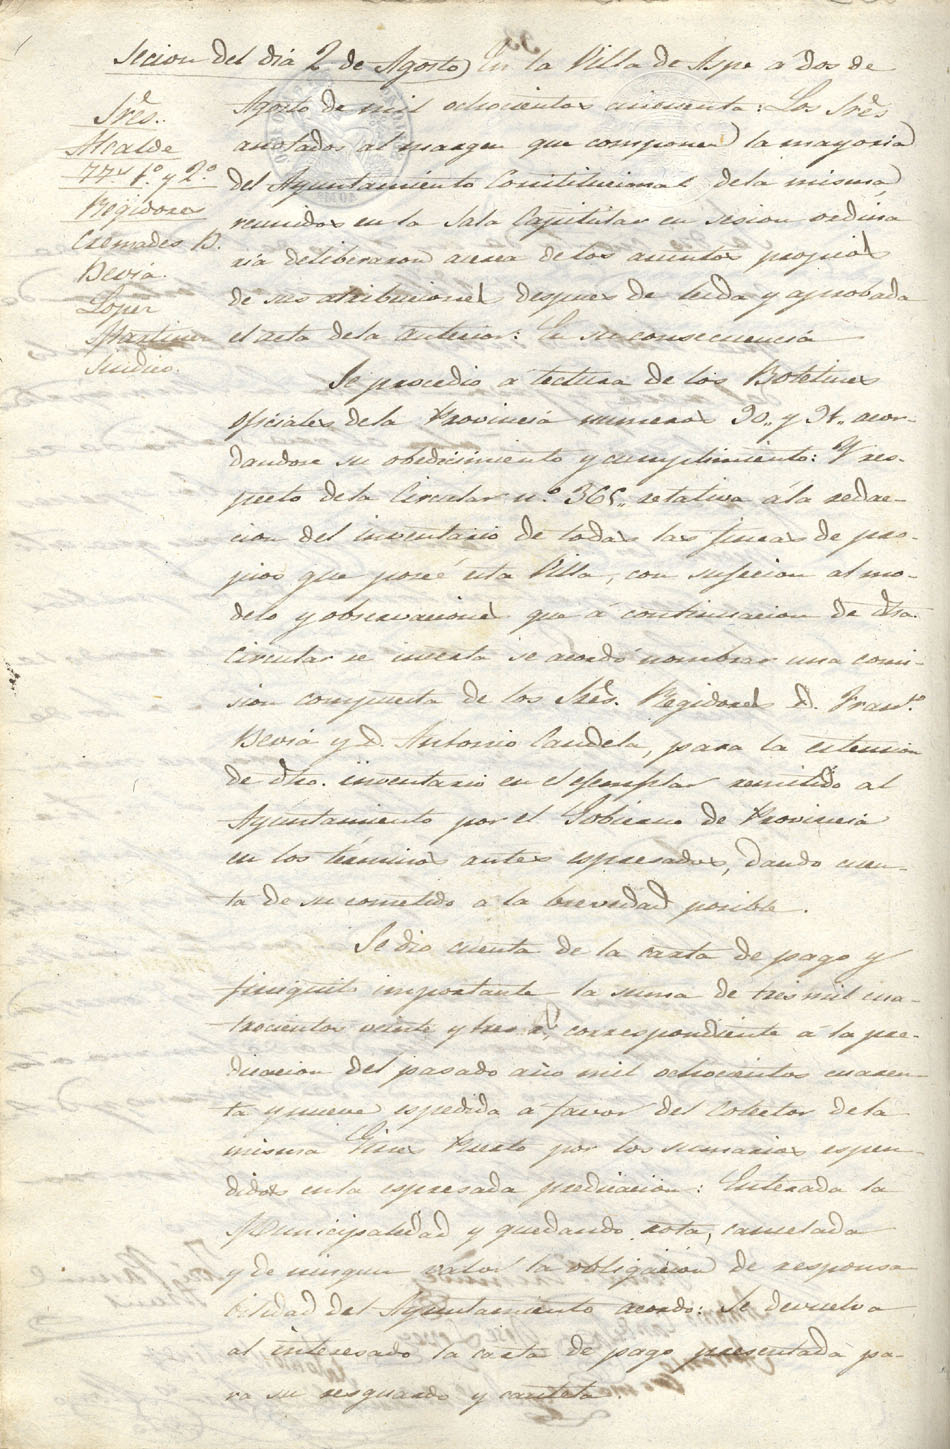 Secion del diá 2 de Agosto) En la Villa de Aspe a dos de
Sres.
Alcalde
TTes. 1.º y 2.º
Regidores
Cremades D.
Beviá.
Lopez
Martinez
Sindico.
Agosto de mil ochocientos cincuenta: Los Sres
anotados al margen que componen la mayoria
del Ayuntamiento Constitucional dela misma,
reunidos en la Sala Capitular en sesion ordina
ria deliberaron acerca de los asuntos propios
de sus atribuciones despues de leida y aprobada
el acta dela anterior: En su consecuencia
Se procedio a lectura de los Boletines
oficiales dela Provincia numeros 90,, y 91,, acor-
dandose su obedecimiento y cumplimiento: Y res-
pecto dela Circular n.º 365,, relativa á la redac-
cion del inventario de todas las fincas de pro-
pios que poseé esta Villa, con sujecion al mo-
delo y observaciones que á continuacion de dha.
Circular se inserta se acordó nombrar una comi-
sion compuesta de los Sres. Regidores D. Fran.co
Beviá y D. Antonio Candela, para la estension
de dho. inventario en el ejemplar remitido al
Ayuntamiento por el Gobierno de Provincia
en los terminos antes espresados, dando cuen-
ta de su cometido a la brevedad posible.
Se dio cuenta de la carta de pago y
finiquito importante la suma de tres mil cua-
trocientos veinte y tres r.s correspondiente á la pre-
dicacion del pasado año mil ochocientos cuaren-
ta y nueve espedida a favor del Colector dela
misma Gines Puerto por los sumarios espen-
didos enla espresada predicacion: Enterada la
Municipalidad y quedando rota, cancelada
y de ningun valor la obligacion de responsa
bilidad del Ayuntamiento acordo: Se devuelva
al interesado la carta de pago presentada pa-
ra su resguardo y cautela.